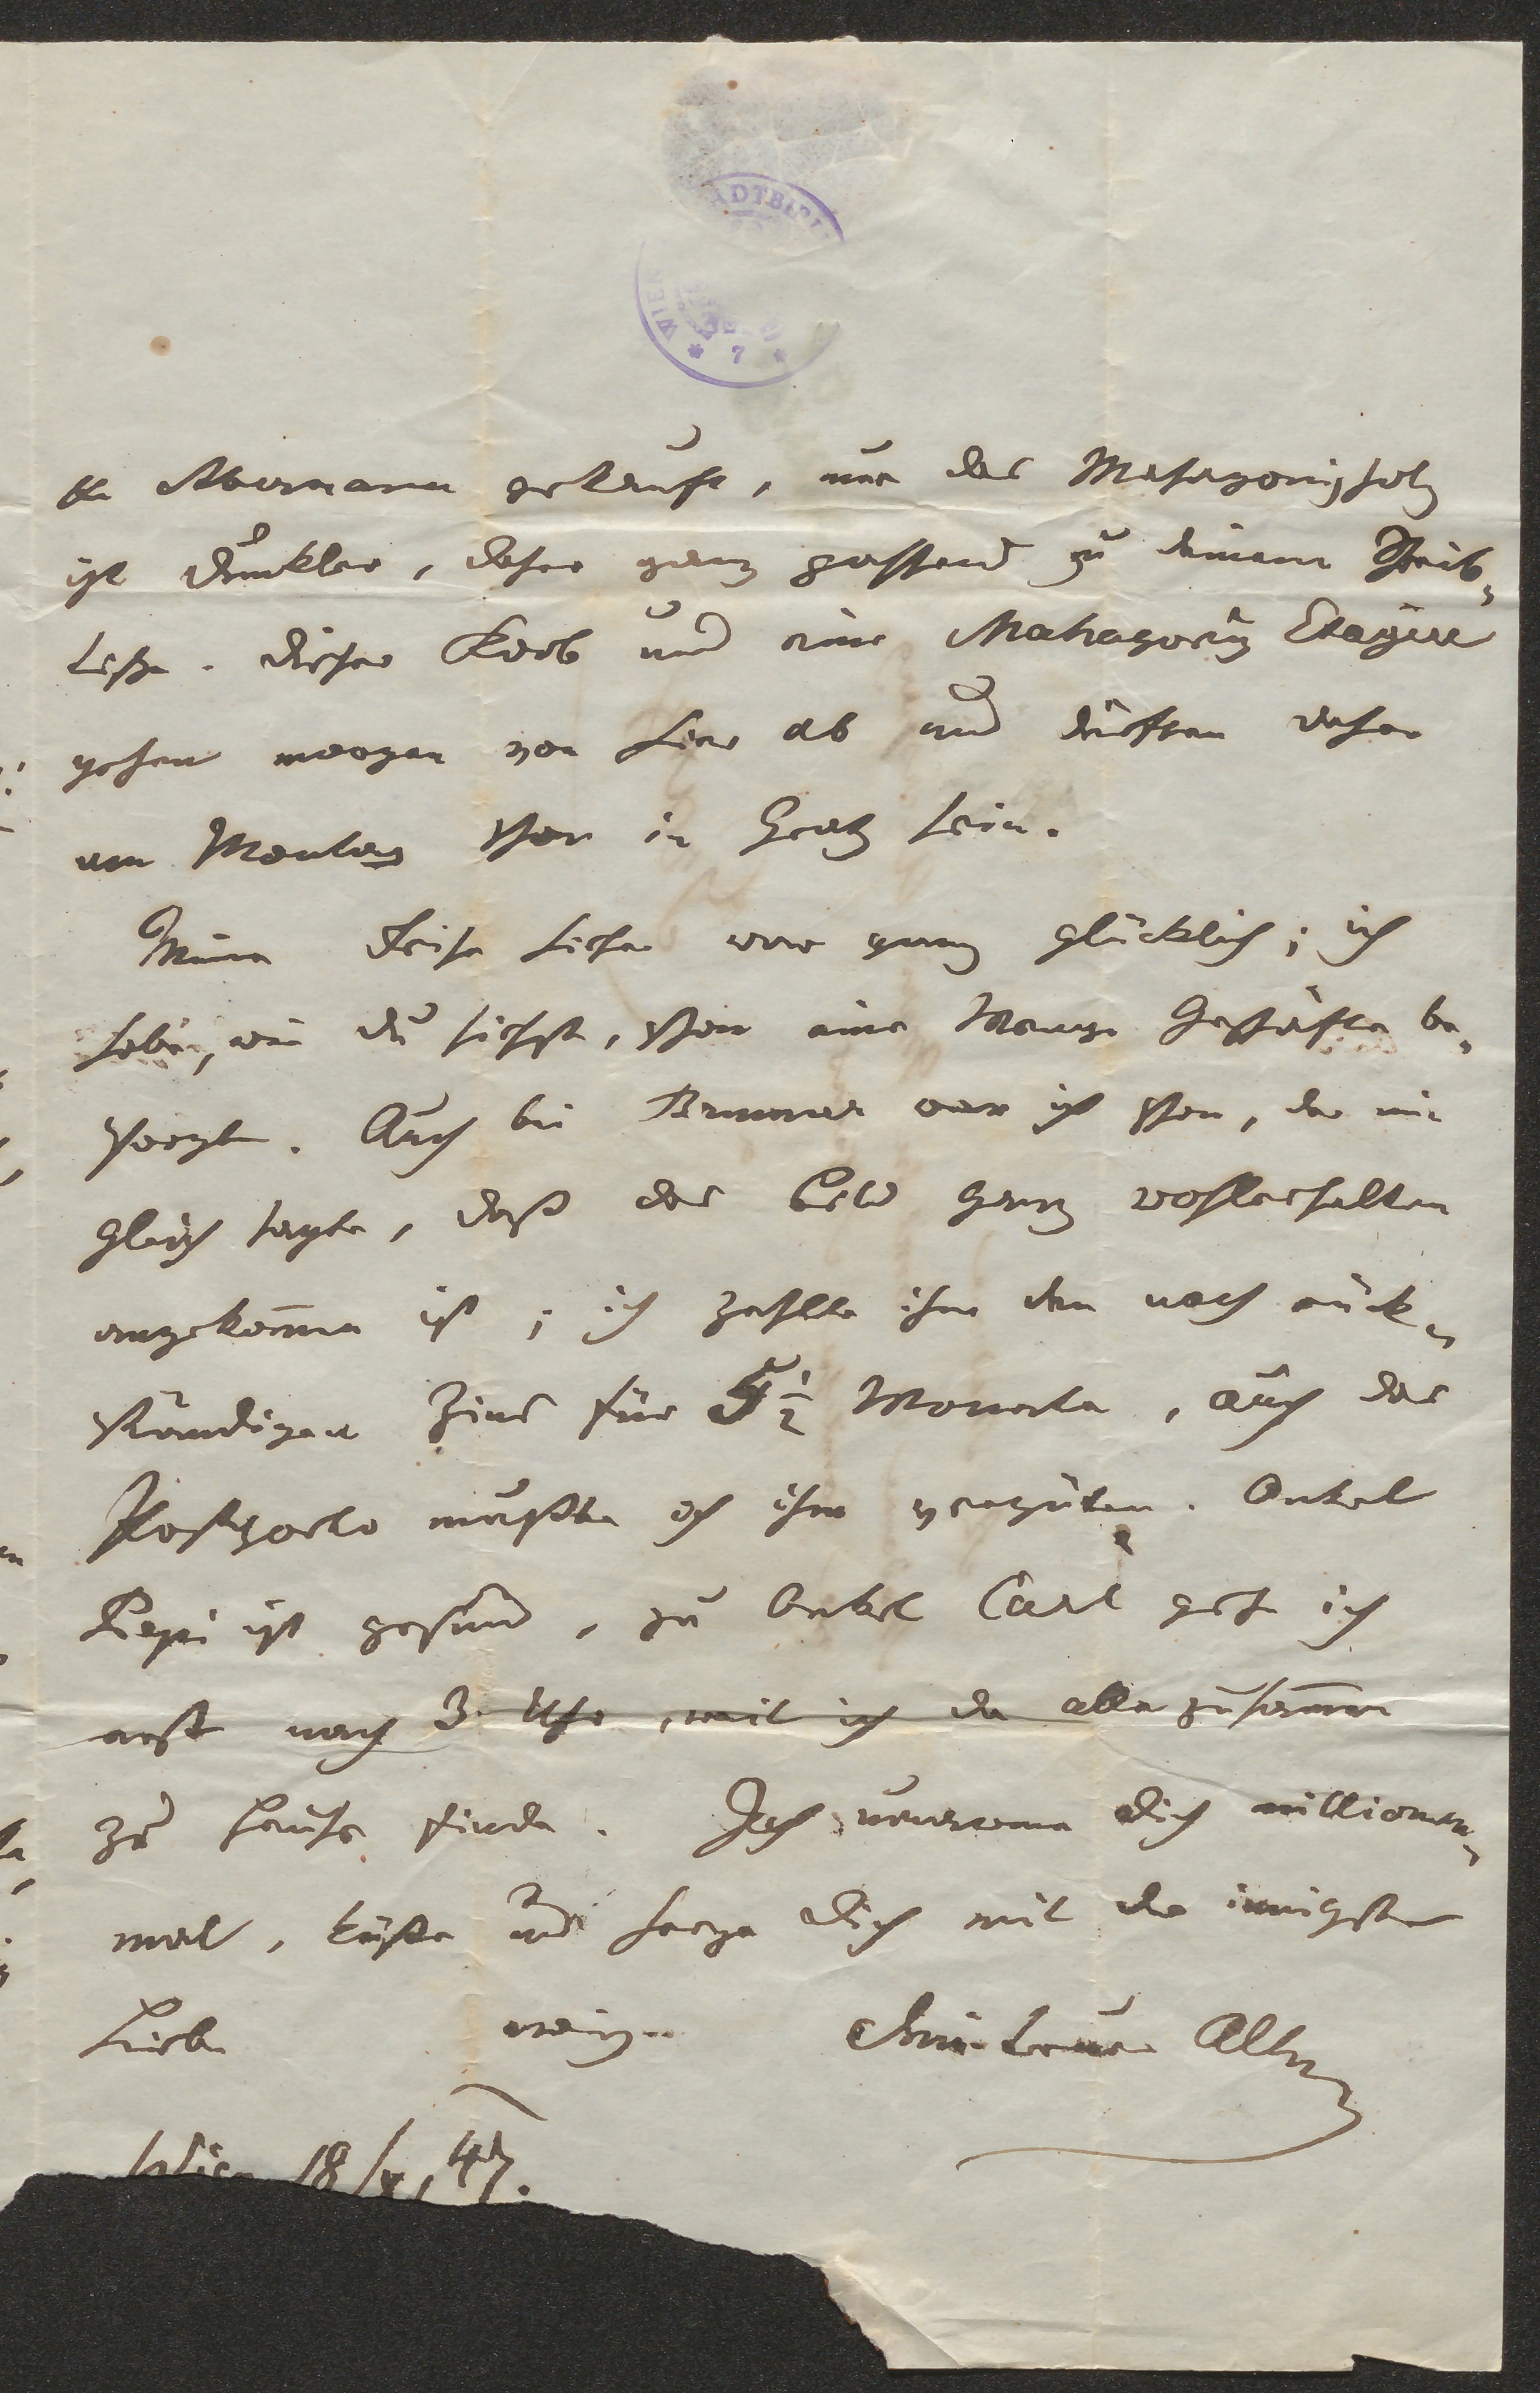 ADTBIBL
WIEN
* 7 *
gekauft, nur das Mahagonÿholz
ist dunkler, daher ganz passend zu deinem Schreib¬
tische. Dieser Korb und eine Mahagonÿ Etagere
gehen morgen von hier ab und dürften daher
am Montag schon in Gratz sein.
Meine Reise hieher war ganz glücklich; ich
habe, wie du siehst, schon eine Menge Geschäfte be¬
sorgt. Auch bei Brunner war ich schon, der mir
gleich sagte, daß das Geld ganz wohlerhalten
angekom̄en ist; ich zahlte ihm den noch rück¬
ständigen Zins für 5½ Monate, auch das
Postporto mußte ich ihm vergüten. Onkel
Pepi ist gesund, zu Onkel Carl geh ich
erst nach 3 Uhr, weil ich da alle zusam̄en
zu Hause finde. Ich umarme dich millionen¬
mal, küsse und herze dich mit der innigsten
Liebe ewig dein treuer Alter
Wien 18/x, 47.